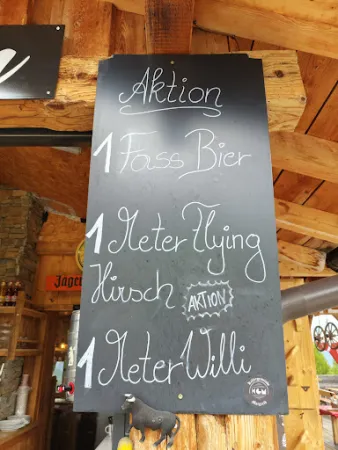 Aktion
1 Fass Bier
1 Meter Flying
Hirsch AKTION
1 Meter Willi
Jäger